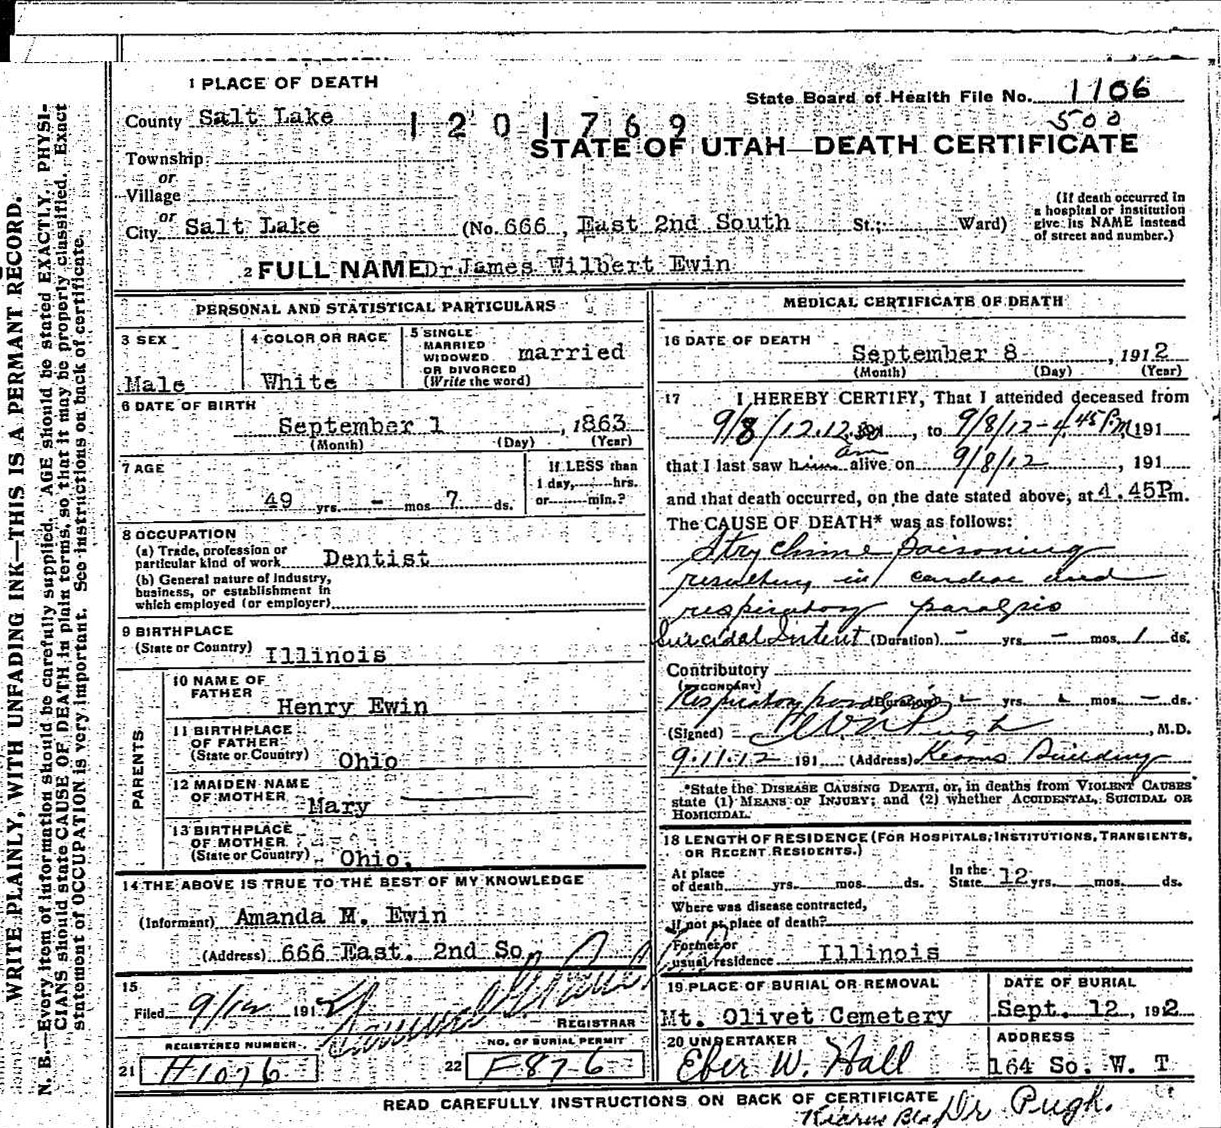 1 PLACE OF DEATH
State Board of Health File No. 1106
County Salt Lake 1201769 500
STATE OF UTAH—DEATH CERTIFICATE
Township
or
Village
or
City Salt Lake (No. 666, East 2nd South St.; Ward)
(If death occurred in a hospital or institution give its NAME instead of street and number.)
2 FULL NAME Dr James Wilbert Ewin
PERSONAL AND STATISTICAL PARTICULARS
3 SEX Male
4 COLOR OR RACE White
5 SINGLE MARRIED WIDOWED OR DIVORCED (Write the word) married
6 DATE OF BIRTH
September 1, 1863
(Month) (Day) (Year)
7 AGE
49 yrs. - mos. 7 ds.
If LESS than 1 day, hrs. or min.?
8 OCCUPATION
(a) Trade, profession or particular kind of work Dentist
(b) General nature of industry, business, or establishment in which employed (or employer)
9 BIRTHPLACE
(State or Country) Illinois
PARENTS
10 NAME OF FATHER Henry Ewin
11 BIRTHPLACE OF FATHER (State or Country) Ohio
12 MAIDEN NAME OF MOTHER Mary
13 BIRTHPLACE OF MOTHER (State or Country) Ohio.
14 THE ABOVE IS TRUE TO THE BEST OF MY KNOWLEDGE
(Informant) Amanda M. Ewin
(Address) 666 East. 2nd So.
15
Filed 9/12 1912
REGISTRAR
REGISTERED NUMBER
21 H1076
NO. OF BURIAL PERMIT
22 F876
MEDICAL CERTIFICATE OF DEATH
16 DATE OF DEATH
September 8, 1912
(Month) (Day) (Year)
17 I HEREBY CERTIFY, That I attended deceased from
9/8/12.12, to 9/8/12-4.45 P.M, 191
that I last saw him alive on 9/8/12, 191
and that death occurred, on the date stated above, at 4.45P m.
The CAUSE OF DEATH* was as follows:
Strychnine Poisoning
resulting in cardiac and
respiratory paralysis
Suicidal Intent (Duration) - yrs. - mos. 1 ds.
Contributory
(SECONDARY)
Respiratory paralysis (Duration) yrs. mos. - ds.
(Signed) Pugh, M.D.
9.11.12 191 (Address) Kearns Building
*State the DISEASE CAUSING DEATH, or, in deaths from VIOLENT CAUSES state (1) MEANS OF INJURY; and (2) whether ACCIDENTAL, SUICIDAL OR HOMICIDAL.
18 LENGTH OF RESIDENCE (FOR HOSPITALS, INSTITUTIONS, TRANSIENTS, OR RECENT RESIDENTS.)
At place of death yrs. mos. ds. In the State 12 yrs. mos. ds.
Where was disease contracted,
if not at place of death?
Former or usual residence Illinois
19 PLACE OF BURIAL OR REMOVAL
Mt. Olivet Cemetery
DATE OF BURIAL
Sept. 12, 1912
20 UNDERTAKER
Eber W. Hall
ADDRESS
164 So. W. T
READ CAREFULLY INSTRUCTIONS ON BACK OF CERTIFICATE
Kearns Blg Dr Pugh.
WRITE PLAINLY, WITH UNFADING INK—THIS IS A PERMANT RECORD.
N. B.—Every item of information should be carefully supplied. AGE should be stated EXACTLY. PHYSI-
CIANS should state CAUSE OF DEATH in plain terms, so that it may be properly classified. Exact
statement of OCCUPATION is very important. See instructions on back of certificate.